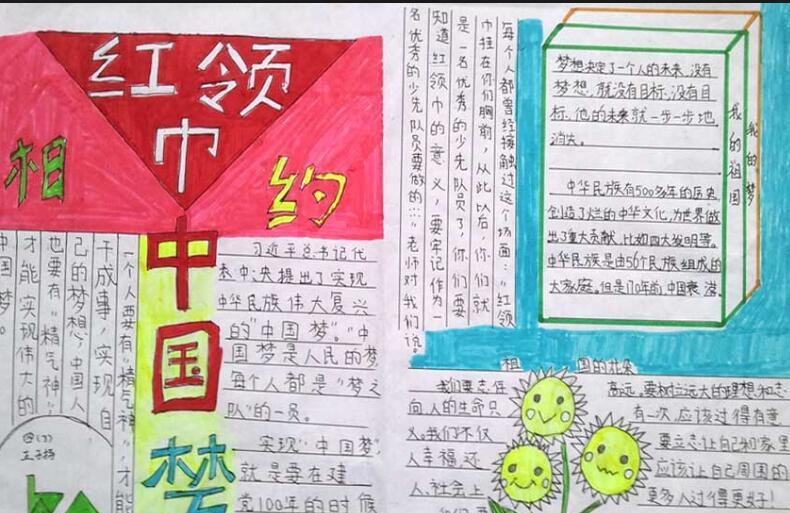 红领
巾
相
约
中
国
梦
一个人要有"精气神",才能
干成事,实现自
己的梦想,中国人
也要有"精气神"
才能实现伟大的
中国梦。
四(3)
习近平总书记代
表中央提出了实现
中华民族伟大复兴
的"中国梦"。"中
国梦是人民的梦,
每个人都是"梦之
队"的一员。
实现"中国梦,
就是要在建
党100年的时候
每个人都曾经接触过这个场面:"红领
巾挂在你们胸前,从此以后,你们就
是一名优秀的少先队员了,你们要
知道红领巾的意义,要牢记作为一
名优秀的少先队员要做的:…"老师对我们说。
梦想决定了一个人的未来,没有
梦想就没有目标,没有目
标,他的未来就一步一步地
消失。
中华民族有500多年的历史
创造了烂的中华文化,为世界做
出了重大贡献,比如四大发明等。
中华民族是由56个民族组成的
大家庭。但是170年前,中国衰落
我的祖国
我的梦
祖国的花朵
我们要志存高远。要树立远大的理想和志
向,人的生命只有一次,应该过得有意
义。我们不仅要立志让自己和家里
人幸福,还应该让自己周围的
人、社会上更多人过得更好!